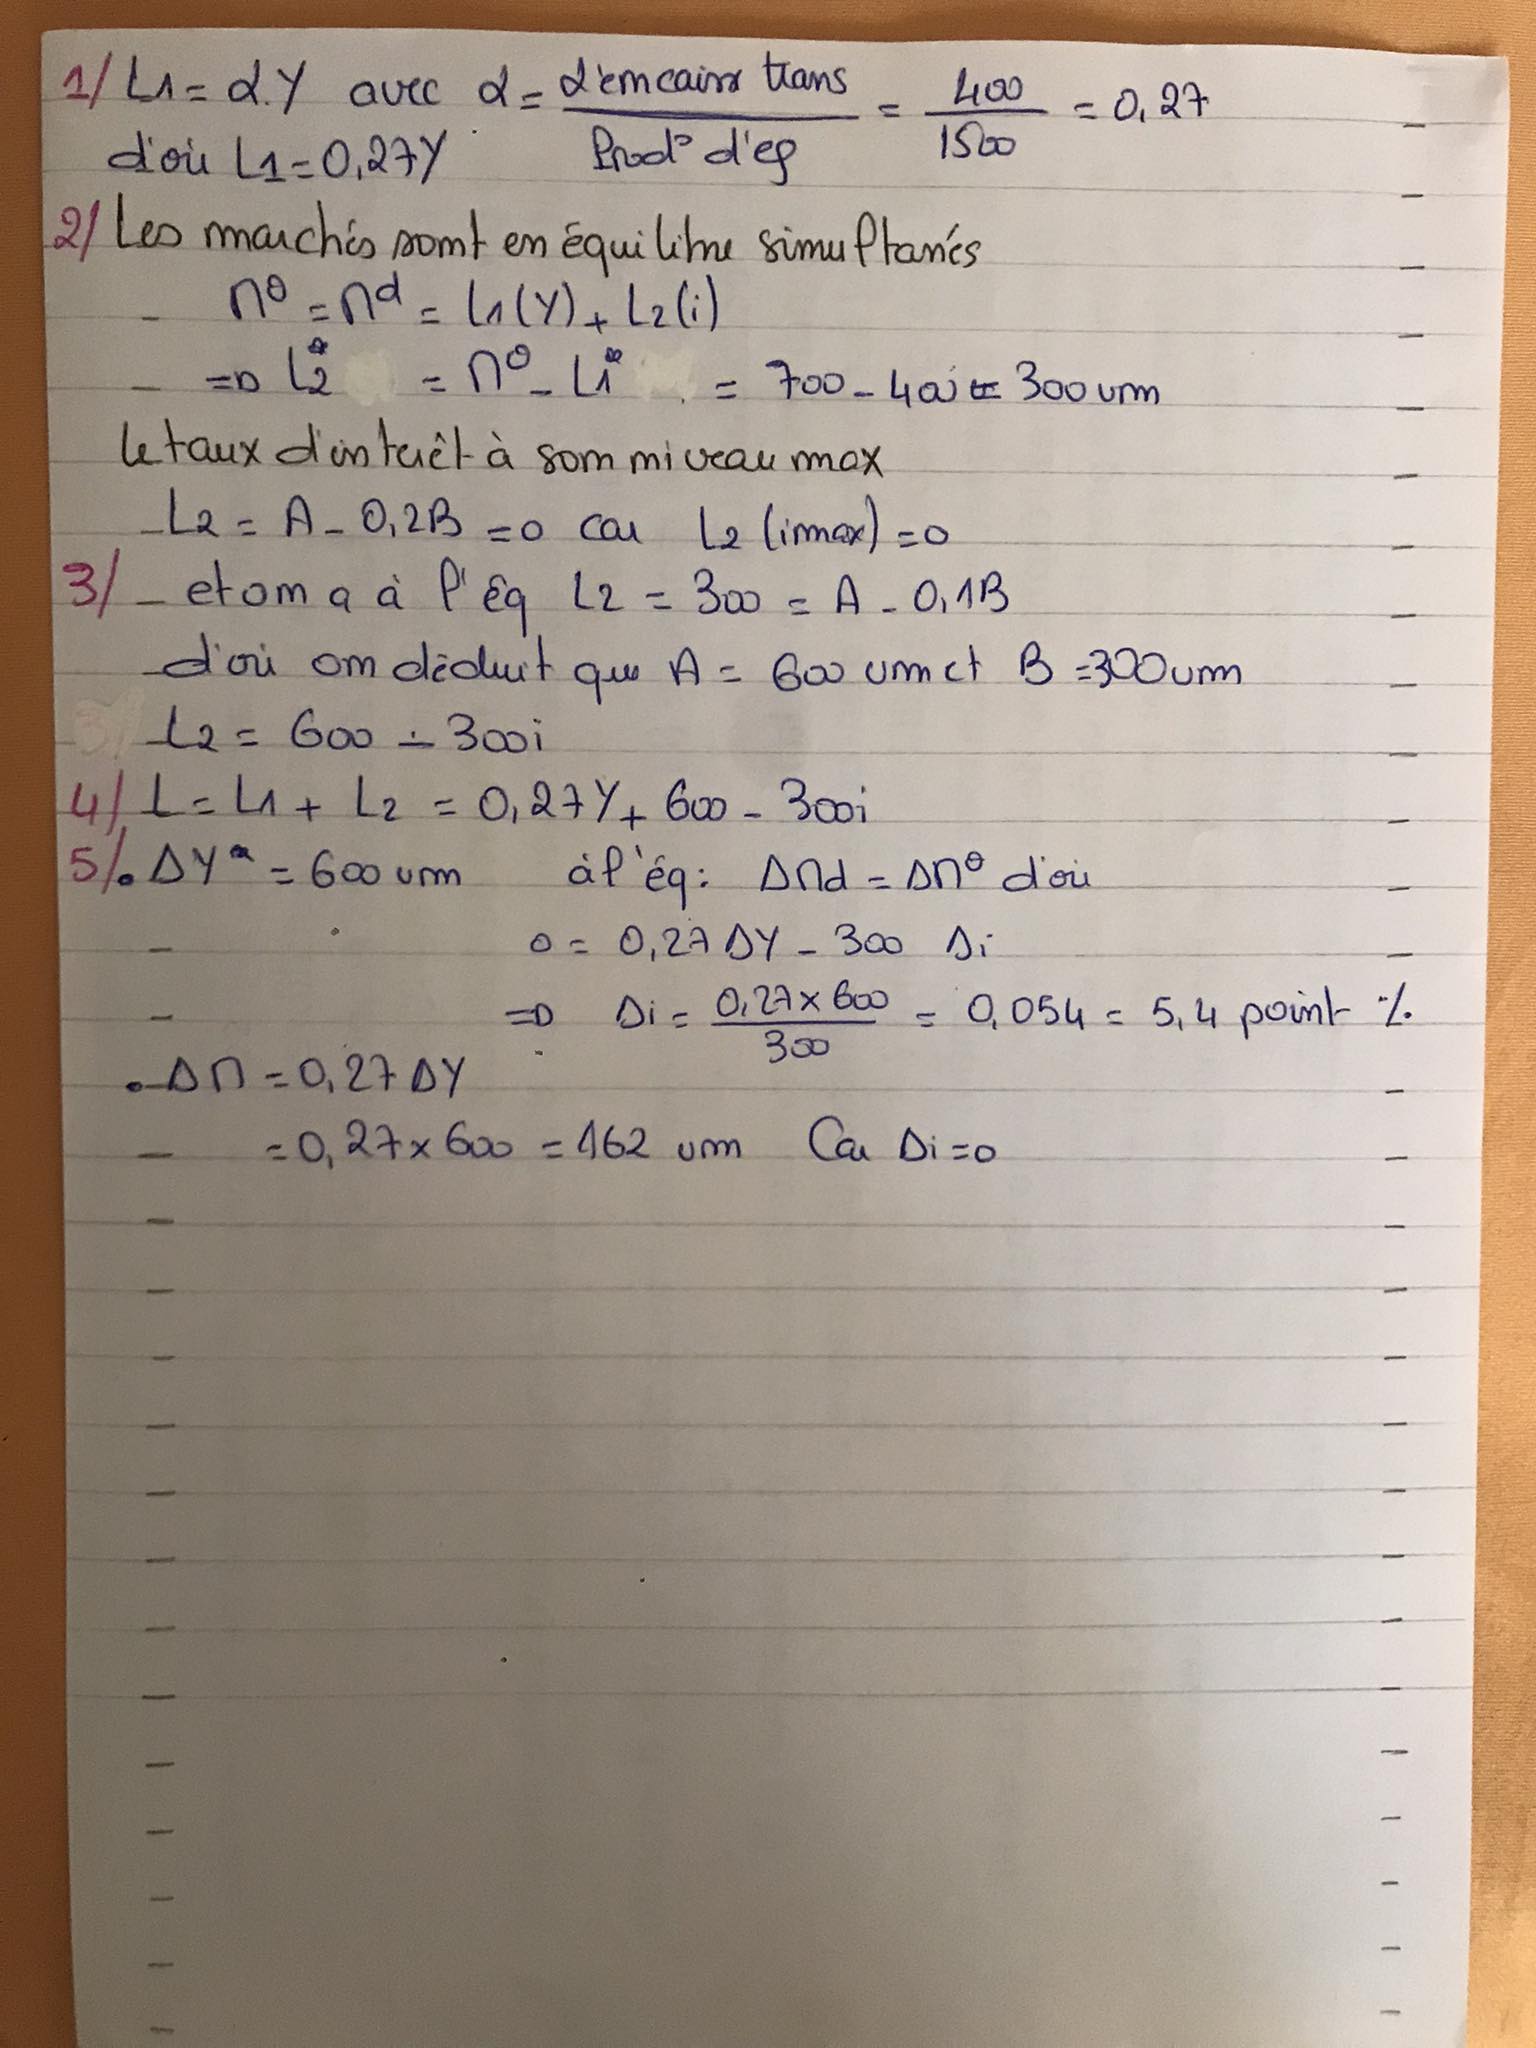 1/ L1 = α.Y avec α = d'encaiss trans / Prod° d'eq = 400 / 1500 = 0,27
d'où L1 = 0,27Y
2/ Les marchés sont en équilibre simultanés
M° = Md = L1(Y) + L2(i)
=> L2* = M° - L1* = 700 - 400 = 300 um
le taux d'intêrêt à son niveau max
L2 = A - 0,2B = 0 car L2 (imax) = 0
3/ - et on a à l'éq L2 = 300 = A - 0,1B
d'où on déduit que A = 600 um et B = 300 um
L2 = 600 - 300i
4/ L = L1 + L2 = 0,27Y + 600 - 300i
5/ • ΔY* = 600 um à l'éq : ΔMd = ΔM° d'où
0 = 0,27 ΔY - 300 Δi
=> Δi = 0,27 x 600 / 300 = 0,054 = 5,4 point %
• ΔM = 0,27 ΔY
= 0,27 x 600 = 162 um Car Δi = 0